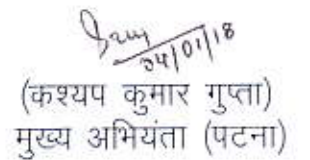 04/01/18
(कश्यप कुमार गुप्ता)
मुख्य अभियंता (पटना)